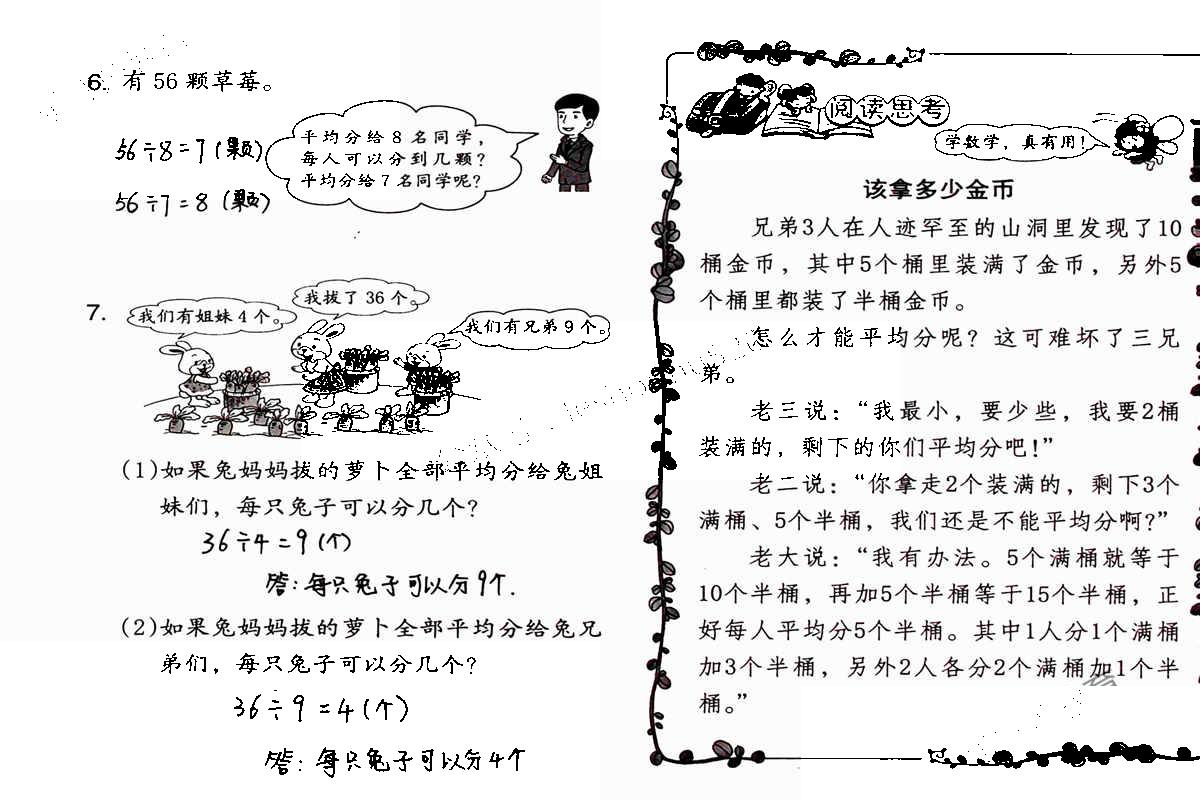 6. 有 56 颗草莓。
56÷8=7(颗)
56÷7=8(颗)
平均分给 8 名同学，
每人可以分到几颗？
平均分给 7 名同学呢？
7.
我们有姐妹 4 个。
我拔了 36 个。
我们有兄弟 9 个。
(1)如果兔妈妈拔的萝卜全部平均分给兔姐
妹们，每只兔子可以分几个？
36÷4=9(个)
答：每只兔子可以分9个.
(2)如果兔妈妈拔的萝卜全部平均分给兔兄
弟们，每只兔子可以分几个？
36÷9=4(个)
答：每只兔子可以分4个
阅读思考
学数学，真有用！
该拿多少金币
兄弟3人在人迹罕至的山洞里发现了10
桶金币，其中5个桶里装满了金币，另外5
个桶里都装了半桶金币。
怎么才能平均分呢？这可难坏了三兄
弟。
老三说：“我最小，要少些，我要2桶
装满的，剩下的你们平均分吧！”
老二说：“你拿走2个装满的，剩下3个
满桶、5个半桶，我们还是不能平均分啊？”
老大说：“我有办法。5个满桶就等于
10个半桶，再加5个半桶等于15个半桶，正
好每人平均分5个半桶。其中1人分1个满桶
加3个半桶，另外2人各分2个满桶加1个半
桶。”